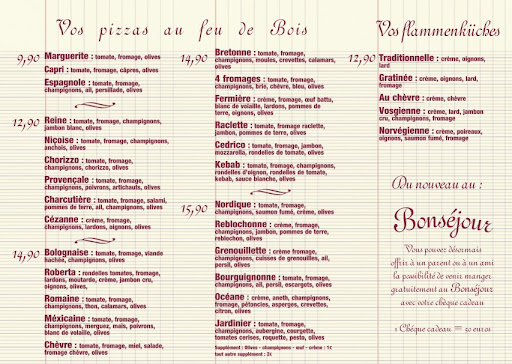 Vos pizzas au feu de Bois
9,90 Marguerite : tomate, fromage, olives
Capri : tomate, fromage, câpres, olives
Espagnole : tomate, fromage,
champignons, ail, persillade, olives
12,90 Reine : tomate, fromage, champignons,
jambon blanc, olives
Niçoise : tomate, fromage, champignons,
anchois, olives
Chorizzo : tomate, fromage,
champignons, chorizzo, olives
Provençale : tomate, fromage,
champignons, poivrons, artichauts, olives
Charcutière : tomate, fromage, salami,
pommes de terre, ail, champignons, olives
Cézanne : crème, fromage,
champignons, lardons, oignons, olives
14,90 Bolognaise : tomate, fromage, viande
hachée, champignons, olives
Roberta : rondelles tomates, fromage,
lardons, moutarde, crème, jambon cru,
oignons, olives
Romaine : tomate, fromage,
champignons, thon, calamars, olives
Méxicaine : tomate, fromage,
champignons, merguez, maïs, poivrons,
blanc de volaille, olives
Chèvre : tomate, fromage, miel, salade,
fromage chèvre, olives
14,90 Bretonne : tomate, fromage,
champignons, moules, crevettes, calamars,
olives
4 fromages : tomate, fromage,
champignons, brie, chèvre, bleu, olives
Fermière : crème, fromage, œuf battu,
blanc de volaille, lardons, pommes de
terre, oignons, olives
Raclette : tomate, fromage raclette,
jambon, pommes de terre, olives
Cedrico : tomate, fromage, jambon,
mozzarella, rondelles de tomate, olives
Kebab : tomate, fromage, champignons,
rondelles d'oignon, rondelles de tomate,
kebab, sauce blanche, olives
15,90 Nordique : tomate, fromage,
champignons, saumon fumé, crème, olives
Reblochonne : crème, fromage,
champignons, jambon, pommes de terre,
reblochon, olives
Grenouillette : crème, fromage,
champignons, cuisses de grenouilles, ail,
persil, olives
Bourguignonne : tomate, fromage,
champignons, ail, persil, escargots, olives
Océane : crème, aneth, champignons,
fromage, pétoncles, asperges, crevettes,
citron, olives
Jardinier : tomate, fromage,
champignons, aubergine, courgette,
tomates cerises, roquette, pesto, olives
Supplément : Olives - champignons - œuf - crème : 1€
tout autre supplément : 2€
Vos flammenküches
12,90 Traditionnelle : crème, oignons,
lard
Gratinée : crème, oignons, lard,
fromage
Au chèvre : crème, chèvre
Vosgienne : crème, lard, jambon
cru, champignons, fromage
Norvégienne : crème, poireaux,
oignons, saumon fumé, fromage
Du nouveau au :
Bonséjour
Vous pouvez désormais
offrir à un parent ou à un ami
la possibilité de venir manger
gratuitement au Bonséjour
avec votre chèque cadeau
1 Chèque cadeau = 10 euros